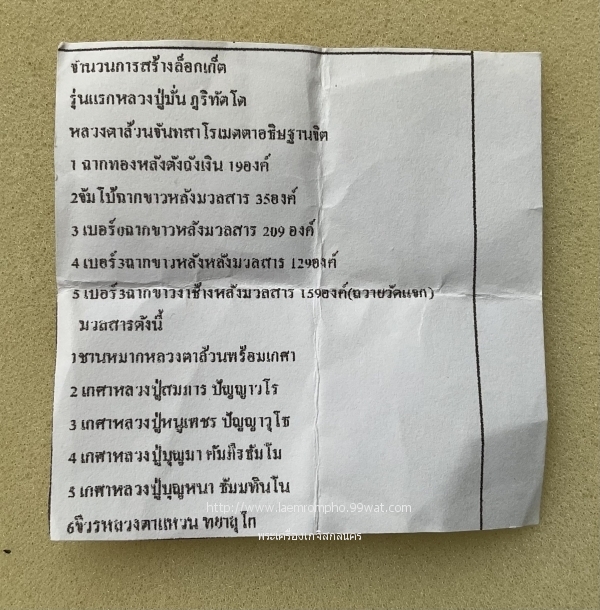 จำนวนการสร้างล็อกเก็ต
รุ่นแรกหลวงปู่มั่น ภูริทัตโต
หลวงตาล้วนจันทสาโรเมตตาอธิษฐานจิต
1 ฉากทองหลังตังถังเงิน 19องค์
2จัมโบ้ฉากขาวหลังมวลสาร 35องค์
3 เบอร์0ฉากขาวหลังมวลสาร 209 องค์
4 เบอร์3ฉากขาวหลังหลังมวลสาร 129องค์
5 เบอร์3ฉากขาวงาช้างหลังมวลสาร 159องค์(ถวายวัดแจก)
มวลสารดังนี้
1ชานหมากหลวงตาล้วนพร้อมเกศา
2 เกศาหลวงปู่สมภาร ปัญญาวโร
3 เกศาหลวงปู่หนูเพชร ปัญญาวุโธ
4 เกศาหลวงปู่บุญมา คัมภีรธัมโม
5 เกศาหลวงปู่บุญหนา ธัมมทินโน
6จีวรหลวงตาแหวน ทยาลุโก
http://www.laemrompho.99wat.com
พระเครื่องเก่งสกลนคร